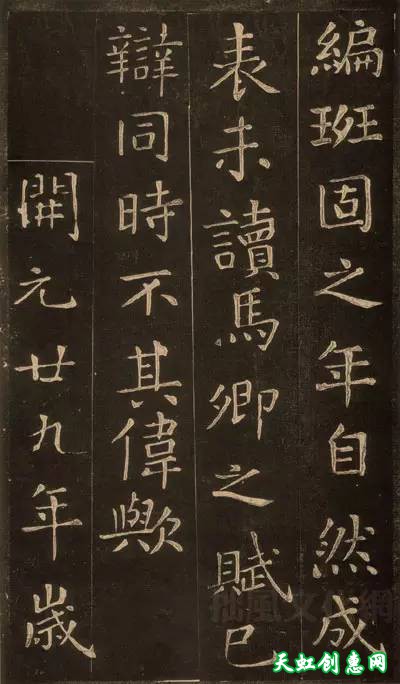 編班固之年自然成
表未讀馬卿之賦已
辯同時不其偉歟
開元廿九年歳
拙風文化網
天虹创惠网